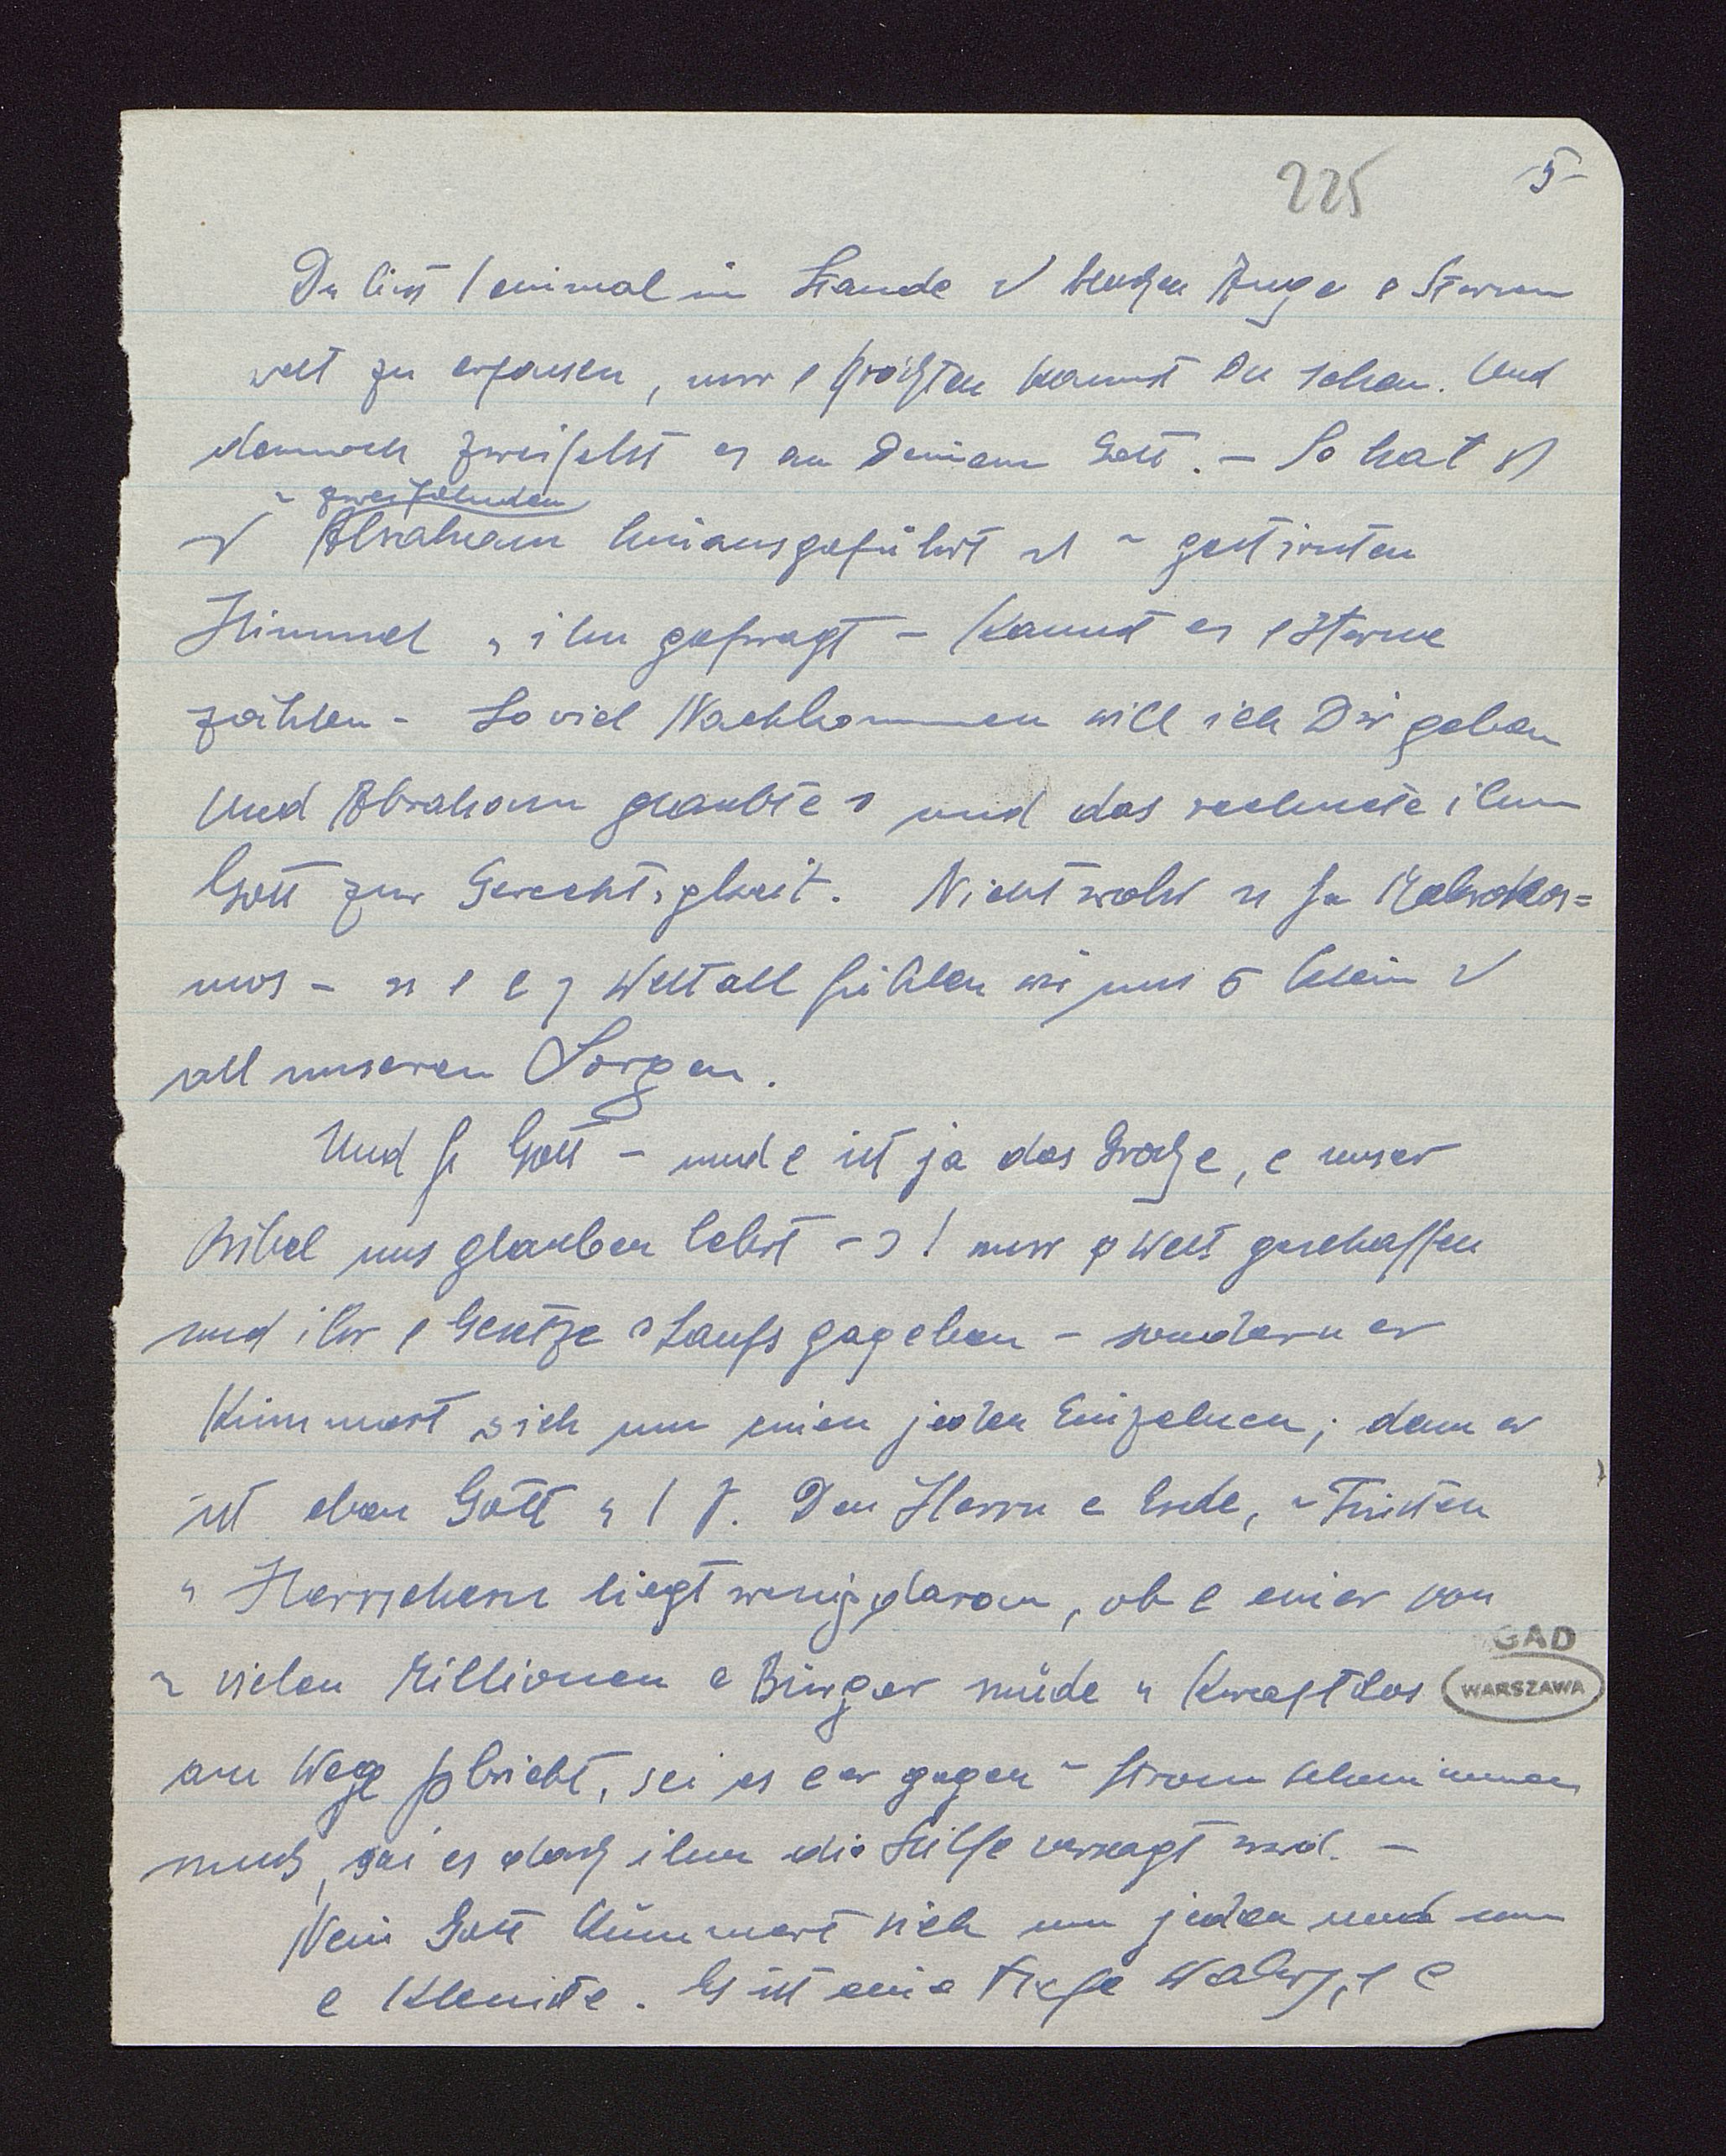 225
5
Du bist einmal im Stande bloßen Auge Sternen
welt zu erfassen, nur größten kannst Du sehen. Und
dennoch zweifelst an Deinem Gott. – So hat
zweifelnden
Abraham hinausgeführt gestirnten
Himmel ihn gefragt – Kannst Sterne
zählen – So viel Nachkommen will ich Dir geben
Und Abraham glaubte und das rechnete ihm
Gott zur Gerechtigkeit. Nicht wahr Makrokos=
mos – Weltall fühlen wir uns klein
all unseren Sorgen.
Und Gott – und ist ja das Große, unser
Bibel uns glauben lehrt – nur Welt geschaffen
und ihr Gesetze Laufs gegeben – sondern er
kümmert sich um einen jeden Einzelnen; denn er
ist eben Gott. Den Herrn Erde, Fürsten
Herrschern liegt wenig daran, ob einer von
vielen Millionen Bürger müde Kraftlos
GAD
WARSZAWA
am Wege bricht, sei es er gegen Strom schwimmen
muß, sei es daß ihm die Hilfe versagt wird. –
Nein Gott kümmert sich um jeden und um
Kleinste. Es ist eine tiefe